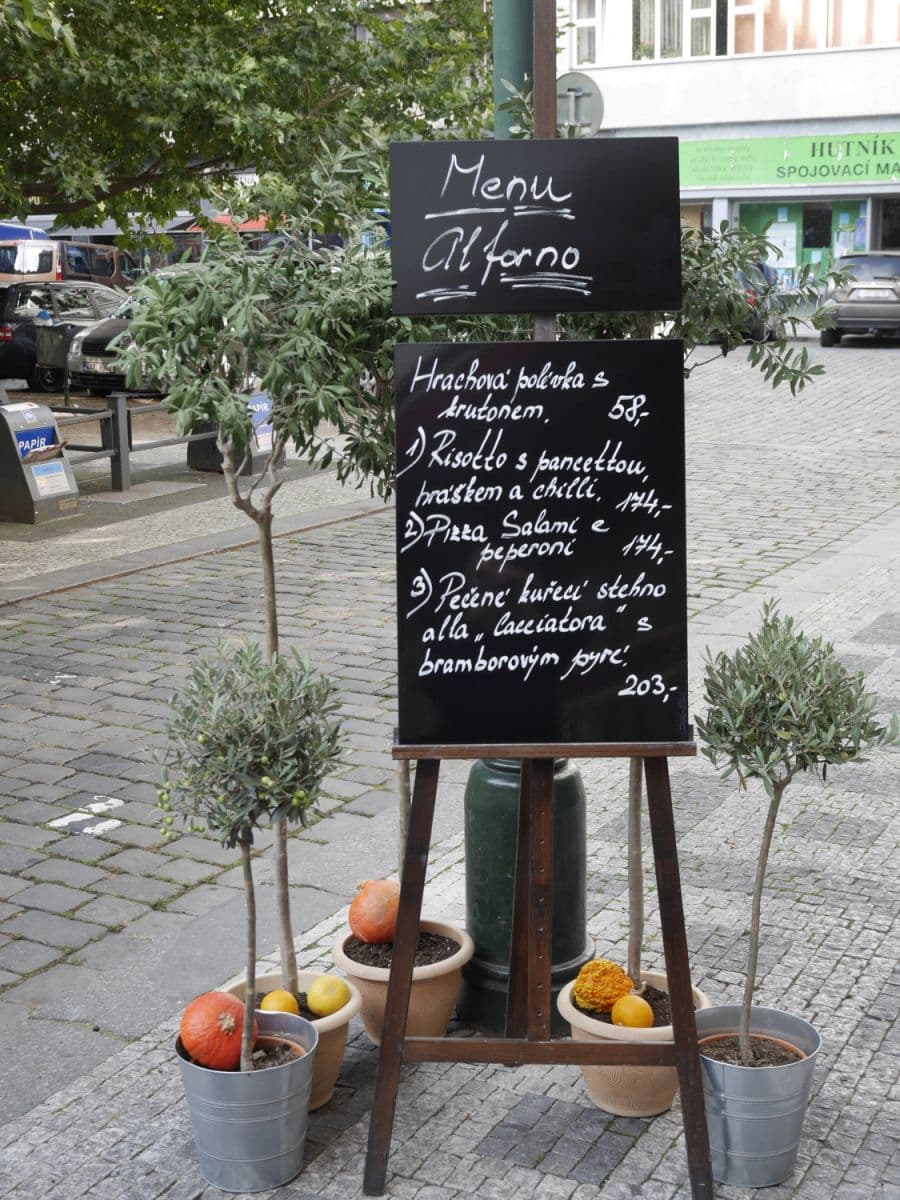 Menu
Al forno
Hrachová polévka s
krutonem. 58,-
1) Risotto s pancettou,
hráškem a chilli. 174,-
2) Pizza Salami e
peperoni 174,-
3) Pečené kuřecí stehno
alla „Cacciatora" s
bramborovým pyré.
203,-
HUTNÍK
SPOJOVACÍ MA
PAPÍR
PAPÍR